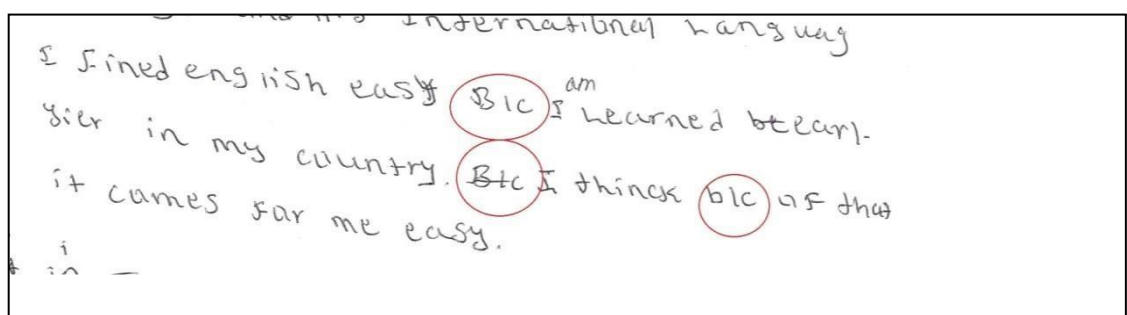 International Languag
I fined english easy B/c I am Learned bt earl-
yier in my country. B/c I thinck b/c of that
it cames for me easy.
i
in